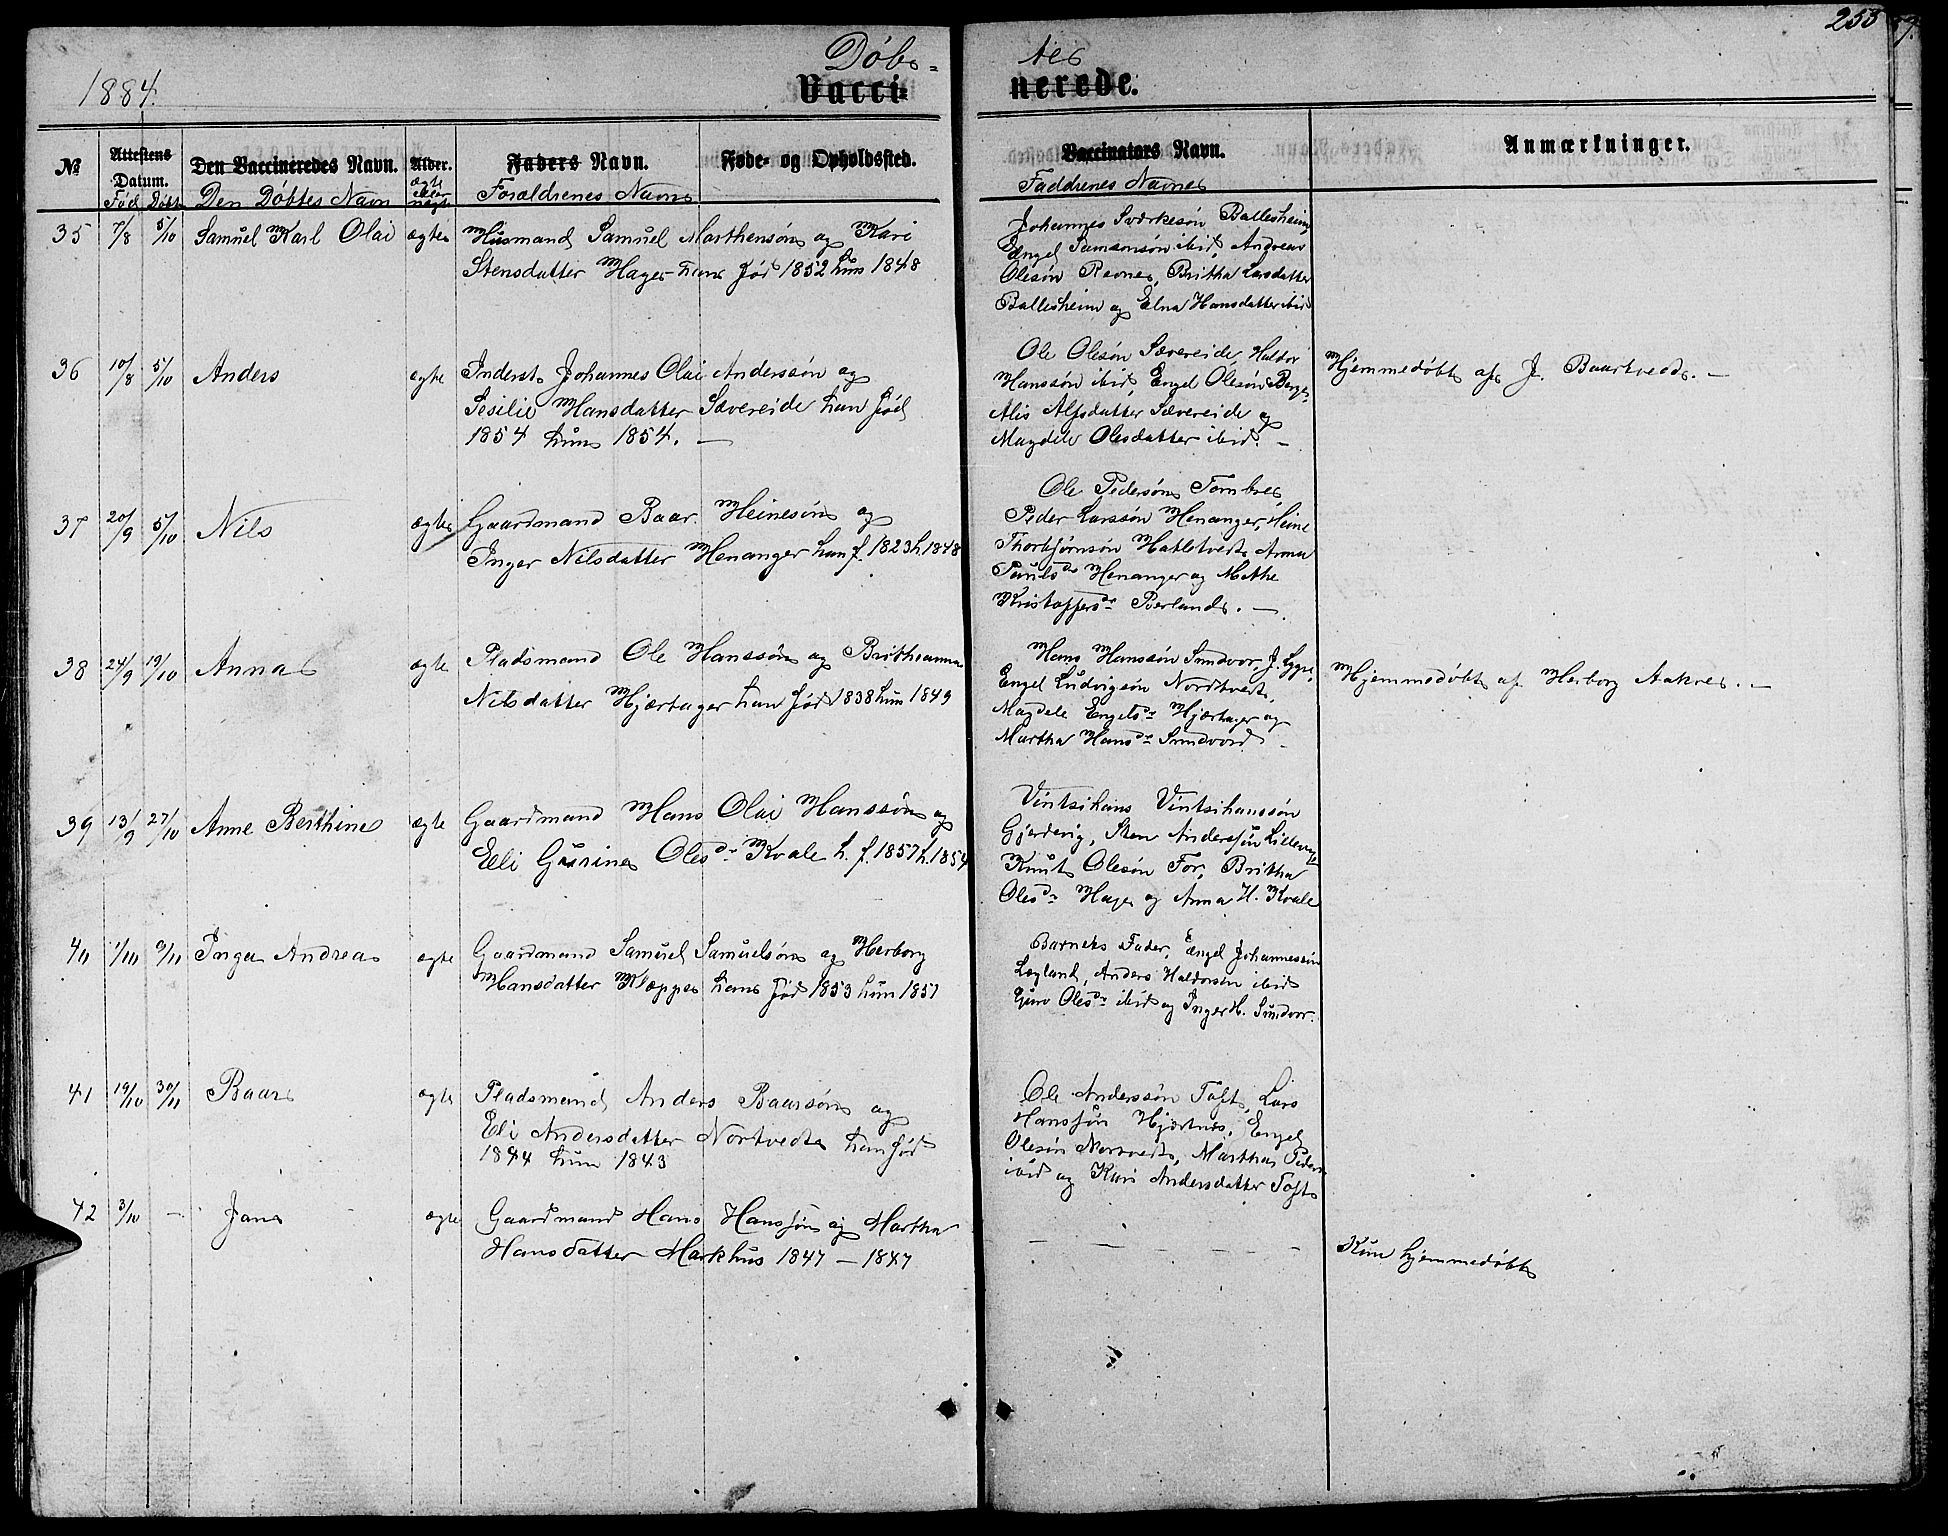 1884.
Døbs-
tes
253
Vacci-
nerede.
№
Attestens
Datum.
Fød Døbt
Den Vaccineredes Navn.
Den Døbtes Navn
Alder.
ægte
eller
uægte
Faders Navn.
Forældrenes Navne
Føde- og Opholdssted.
Vaccinators Navn.
Faddrenes Navne
Anmærkninger.
35 7/8 5/10 Samuel Karl Olai ægte Husmand Samuel Marthensøn og Kari
Stensdatter Hage han fød 1852 hun 1848
Johannes Sværkesøn Ballesheim
Engel Samsonsøn ibid, Andreas
Olesøn Revne, Britha Larsdatter
Ballesheim og Elna Hansdatter ibid
36 10/8 5/10 Anders ægte Inderst Johannes Olai Anderssøn og
Sesilie Hansdatter Sævereide han fød
1854 hun 1854. —
Ole Olesøn Sævereide, Haldor
Hanssøn ibid, Engel Olesøn Berge
Alis Alfsdatter Sævereide og
Magdele Olesdatter ibid. —
Hjemmedøbt af J. Baartvedt. —
37 20/9 5/10 Nils ægte Gaardmand Baar Heinesøn og
Inger Nilsdatter Henanger han f. 1823 h. 1848
Ole Pedersøn Tombre,
Peder Larssøn Henanger, Heine
Thorbjørnsøn Hatletvedt, Anna
Paulsdr Henanger og Methe
Kristoffersdr Øverland. —
38 24/9 19/10 Anna ægte Pladsmand Ole Hanssøn og Britheanna
Nilsdatter Hjærtager han fød 1838 hun 1849
Hans Hanssøn Sundvor, J. Lygre,
Engel Ludvigsøn Nordtvedt,
Magdele Engelsdr Hjærtager og
Martha Hansdr Sundvord —
Hjemmedøbt af Herborg Aakre. —
39 13/9 27/10 Anne Berthine ægte Gaardmand Hans Olai Hanssøn og
Elli Gurine Olesdr Kvale h. f. 1857 h. 1854
Vintsihans Vintsihanssøn
Gjerdevig, Sten Anderssøn
Knut Olesøn For, Britha
Olesdr Hage og Anna H. Kvale
40 1/10 9/11 Inga Andrea ægte Gaardmand Samuel Samuelsøn og Herborg
Hansdatter Kleppe han fød 1853 hun 1857
Barnets Fader, Engel Johannessøn
Løgland, Anders Haldorsøn ibid
Guro Olesdr ibid og Inger H. Sundvor.
41 19/10 30/11 Baar ægte Pladsmand Anders Baarsøn og
Eli Andersdatter Nortvedt han fød
1844 hun 1843
Ole Anderssøn Toft, Lars
Hanssøn Hjærtnes, Engel
Olesøn Nortvedt, Martha Peders
ibid og Kari Andersdatter Toft
42 3/10 — Jans ægte Gaardmand Hans Hanssøn og Martha
Hansdatter Markhus 1847 — 1847
— — — — —
Kun hjemmedøbt